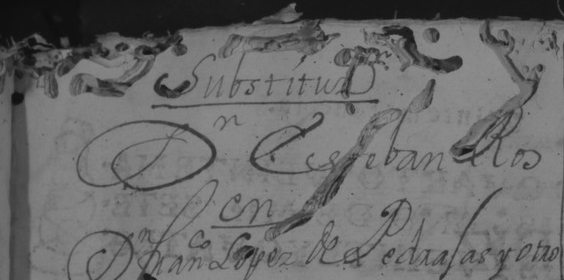 Substituz.ⁿ
Dⁿ Esteban Ros
en
Dⁿ Franco Lopez de Pedrajas y otro